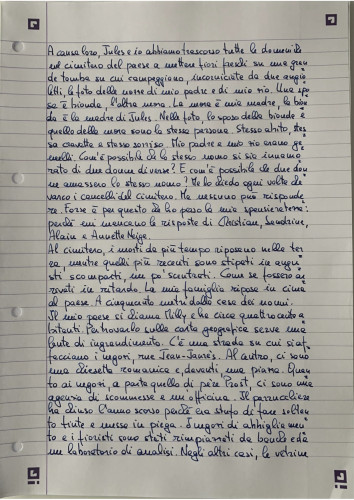 A causa loro, Jules e io abbiamo trascorso tutte le domeniche
nel cimitero del paese a mettere fiori freschi su una gran
de tomba su cui campeggiano, incorniciate da due angio
letti, le foto delle nozze di mio padre e di mio zio. Una spo
sa è bionda, l'altra mora. La mora è mia madre, la bion
da è la madre di Jules. Nella foto, lo sposo della bionda e
quello della mora sono la stessa persona. Stesso abito, stes
sa cravatta e stesso sorriso. Mio padre e mio zio erano ge
melli. Com'è possibile che lo stesso uomo si sia innamo
rato di due donne diverse? E com'è possibile che due don
ne amassero lo stesso uomo? Me lo chiedo ogni volta che
varco i cancelli del cimitero. Ma nessuno può risponde
re. Forse è per questo che ho perso la mia spensieratezza:
perché mi mancano le risposte di Christian, Sandrine,
Alain e Annette Neige.
Al cimitero, i morti da più tempo riposano nella ter
ra, mentre quelli più recenti sono stipati in angu
sti scomparti, un po' scostanti. Come se fossero ar
rivati in ritardo. La mia famiglia riposa in cima
al paese. A cinquanta metri dalla casa dei nonni.
Il mio paese si chiama Milly e ha circa quattrocento a
bitanti. Per trovarlo sulla carta geografica serve una
lente di ingrandimento. C'è una strada su cui si af
facciano i negozi, rue Jean-Jaurès. Al centro, ci sono
una chiesetta romanica e, davanti, una piazza. Quan
to ai negozi, a parte quello di père Prost, ci sono una
agenzia di scommesse e un'officina. Il parrucchiere
ha chiuso l'anno scorso perché era stufo di fare soltan
to tinte e messe in piega. I negozi di abbigliamen
to e i fioristi sono stati rimpiazzati da banche e da
un laboratorio di analisi. Negli altri casi, le vetrine